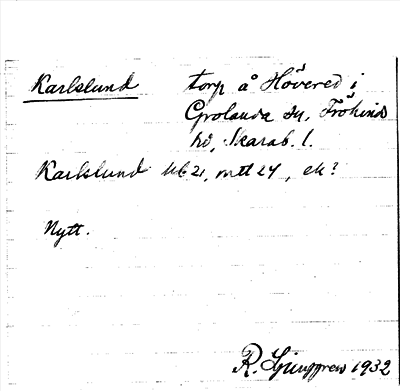 Karlslund torp å Hövered i
Grolanda sn, Frökinds
hd, Skarab. l.
Karlslund Ub 21, mtl 24, ek?
Nytt.
R. Ljunggren 1932